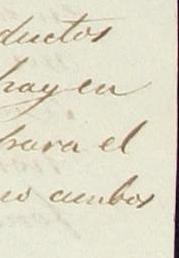 ductos
hay en
para el
no ambos